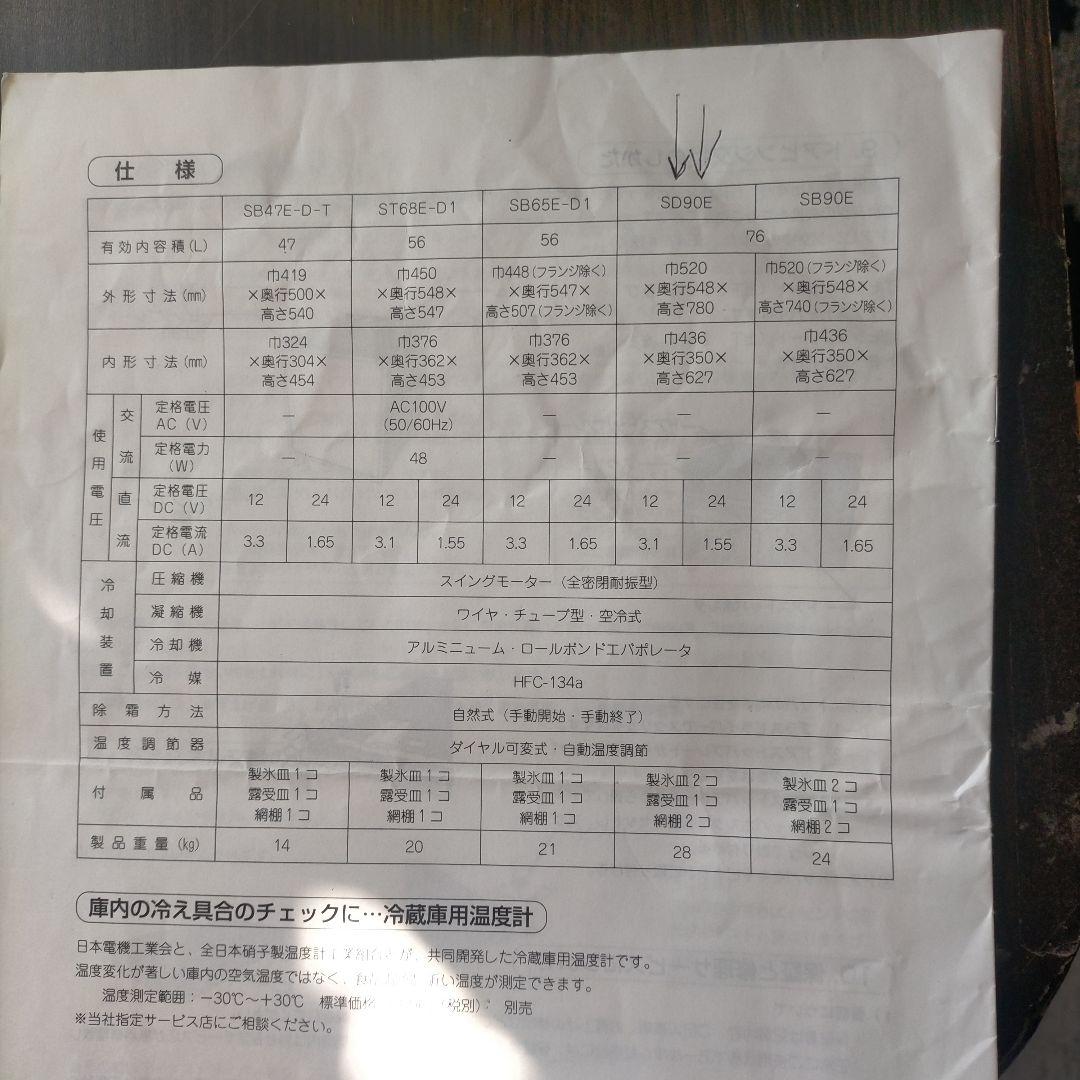 仕 様
SB47E-D-T ST68E-D1 SB65E-D1 SD90E SB90E
有効内容積(L) 47 56 56 76
外形寸法(mm)
巾419
×奥行500×
高さ540
巾450
×奥行548×
高さ547
巾448(フランジ除く)
×奥行547×
高さ507(フランジ除く)
巾520
×奥行548×
高さ780
巾520(フランジ除く)
×奥行548×
高さ740(フランジ除く)
内形寸法(mm)
巾324
×奥行304×
高さ454
巾376
×奥行362×
高さ453
巾376
×奥行362×
高さ453
巾436
×奥行350×
高さ627
巾436
×奥行350×
高さ627
使用電圧
交流
定格電圧
AC(V)
— AC100V
(50/60Hz)
— — —
定格電力
(W)
— 48 — — —
直流
定格電圧
DC(V)
12 24 12 24 12 24 12 24 12 24
定格電流
DC(A)
3.3 1.65 3.1 1.55 3.3 1.65 3.1 1.55 3.3 1.65
冷却装置
圧縮機 スイングモーター(全密閉耐振型)
凝縮機 ワイヤ・チューブ型・空冷式
冷却機 アルミニューム・ロールボンドエバポレータ
冷媒 HFC-134a
除霜方法 自然式(手動開始・手動終了)
温度調節器 ダイヤル可変式・自動温度調節
付属品
製氷皿1コ
露受皿1コ
網棚1コ
製氷皿1コ
露受皿1コ
網棚1コ
製氷皿1コ
露受皿1コ
網棚1コ
製氷皿2コ
露受皿1コ
網棚2コ
製氷皿2コ
露受皿1コ
網棚2コ
製品重量(kg) 14 20 21 28 24
庫内の冷え具合のチェックに…冷蔵庫用温度計
日本電機工業会と、全日本硝子製温度計 が、共同開発した冷蔵庫用温度計です。
温度変化が著しい庫内の空気温度ではなく、 近い温度が測定できます。
温度測定範囲:−30℃〜+30℃ 標準価格 (税別): 別売
※当社指定サービス店にご相談ください。